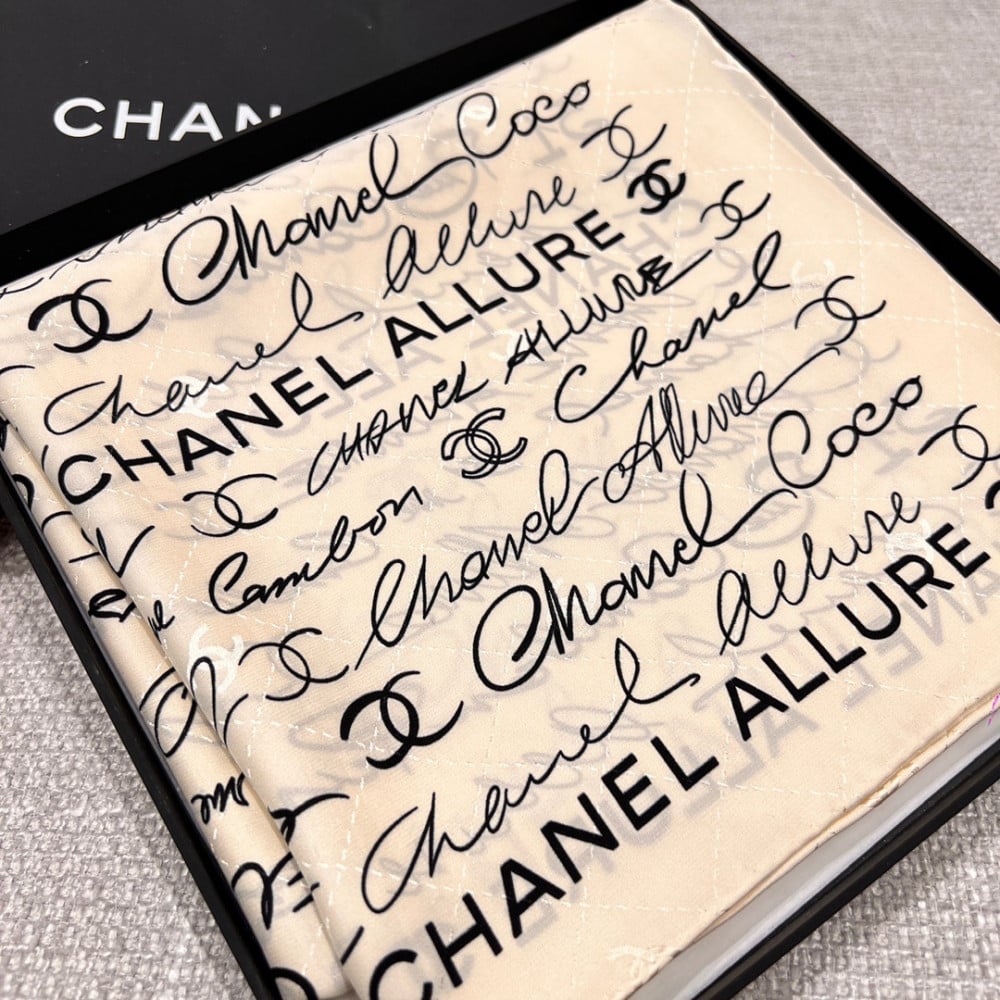 CHAN
Chanel Coco
Chanel Allure
CHANEL ALLURE
CHANEL ALLURE
Cambon Chanel
Chanel Allure
Chanel Coco
Chanel Allure
CHANEL ALLURE